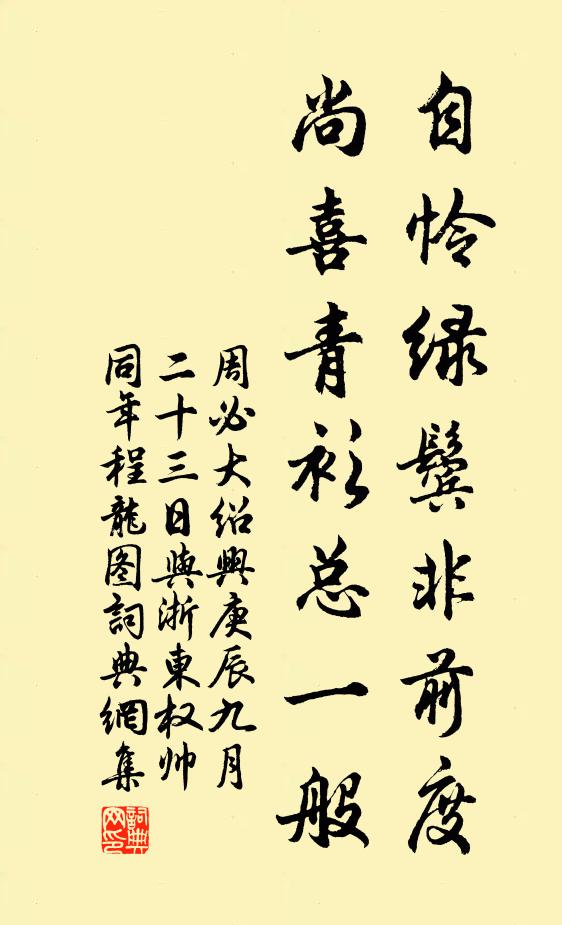 自怜绿鬓非前度
尚喜青衫总一般
周必大绍興庚辰九月
二十三日與浙東权帅
同年程龍图詞典網集
詞典
网印